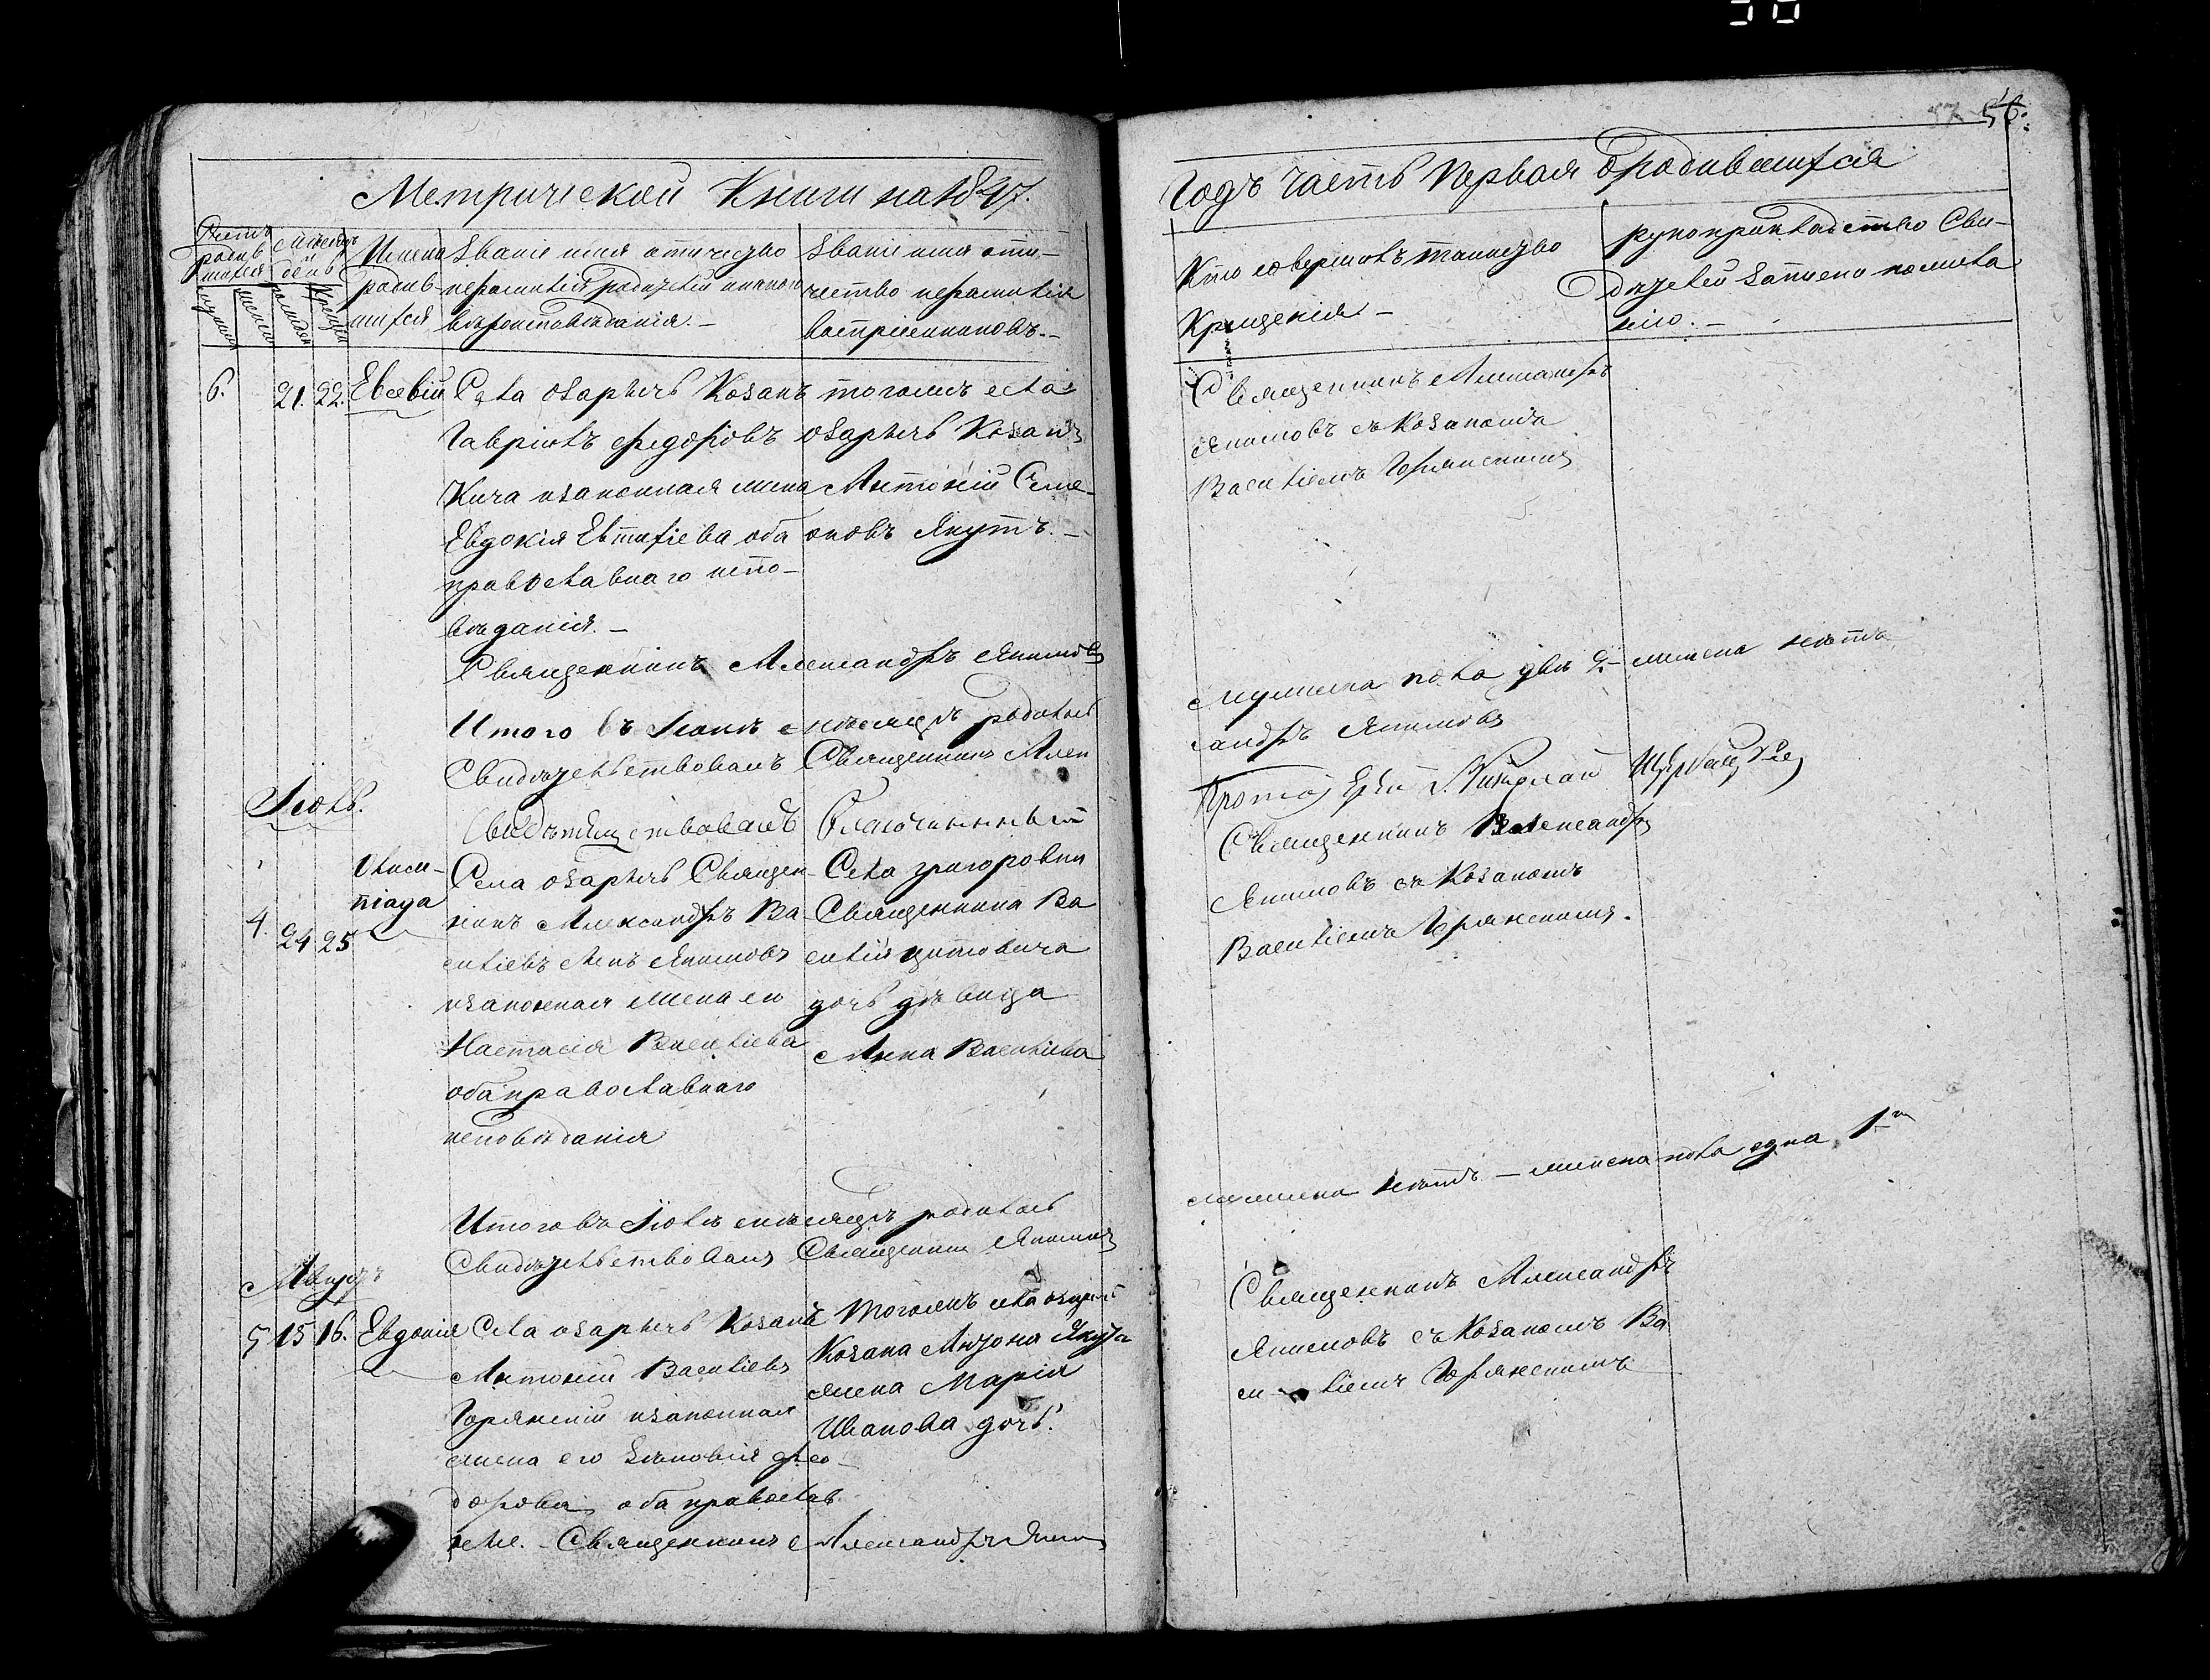 56.
Метрической Книги на 1847.
Годъ часть первая о родившихся
Счетъ родившихся
Мѣсяцъ и день
Имена родившихся
Званіе имя отчество
и фамилія родителей и какого
вѣроисповѣданія. —
Званіе имя оте-
чество и фамилія
воспріемниковъ. —
Кто совершалъ таинство
Крещенія —
рукоприкладство Сви-
дѣтелей записи по жела
нію. —
6. 21. 22. Евсевій
Села озаричь Козакъ
Гавріилъ Федоровъ
Кича и законная жена
Евдокія Евтифіева оба
православнаго испо-
вѣданія. —
тогожъ села
озаричь Козакъ
Антоній Семе-
оновъ Якутъ. —
Священникъ Александръ
Якимовъ съ Козакомъ
Василіемъ Горянскимъ
Священникъ Александръ Якимовъ
Итого въ Іюнѣ мѣсяцѣ родилось
мужеска пола два 2 — женска нѣтъ
Свидѣтельствовалъ Священникъ Алек
сандръ Якимовъ
Свидѣтельствовалъ Благочинный
Протоіерей Николай
Іюль.
4. 24 25
Олим-
піада
Села озаричь Священ-
никъ Александръ Ва
силіевъ сынъ Якимовъ
и законная жена его
Настасія Василіева
оба православнаго
исповѣданія
Села григоровки
Священника Ва
силія цитовича
дочь дѣвица
Анна Василіева
Священникъ Александръ
Якимовъ съ Козакомъ
Василіемъ Горянскимъ.
Итого въ Іюлѣ мѣсяцѣ родилось
мужеска нѣтъ — женска пола одна 1
Свидѣтельствовалъ Священникъ Якимовъ
Августъ
5 15 16. Евдокія
Села озаричь Козакъ
Антоній Василіевъ
Горянскій и законная
жена его Зѣновія Фео-
дорова оба православ
ные. — Священникъ Александръ Яким
Тогожъ села озаричь
Козака Антона Якута
жена Марія
Иванова дочь.
Священникъ Александръ
Якимовъ съ Козакомъ Ва
си — ліемъ Горянскимъ